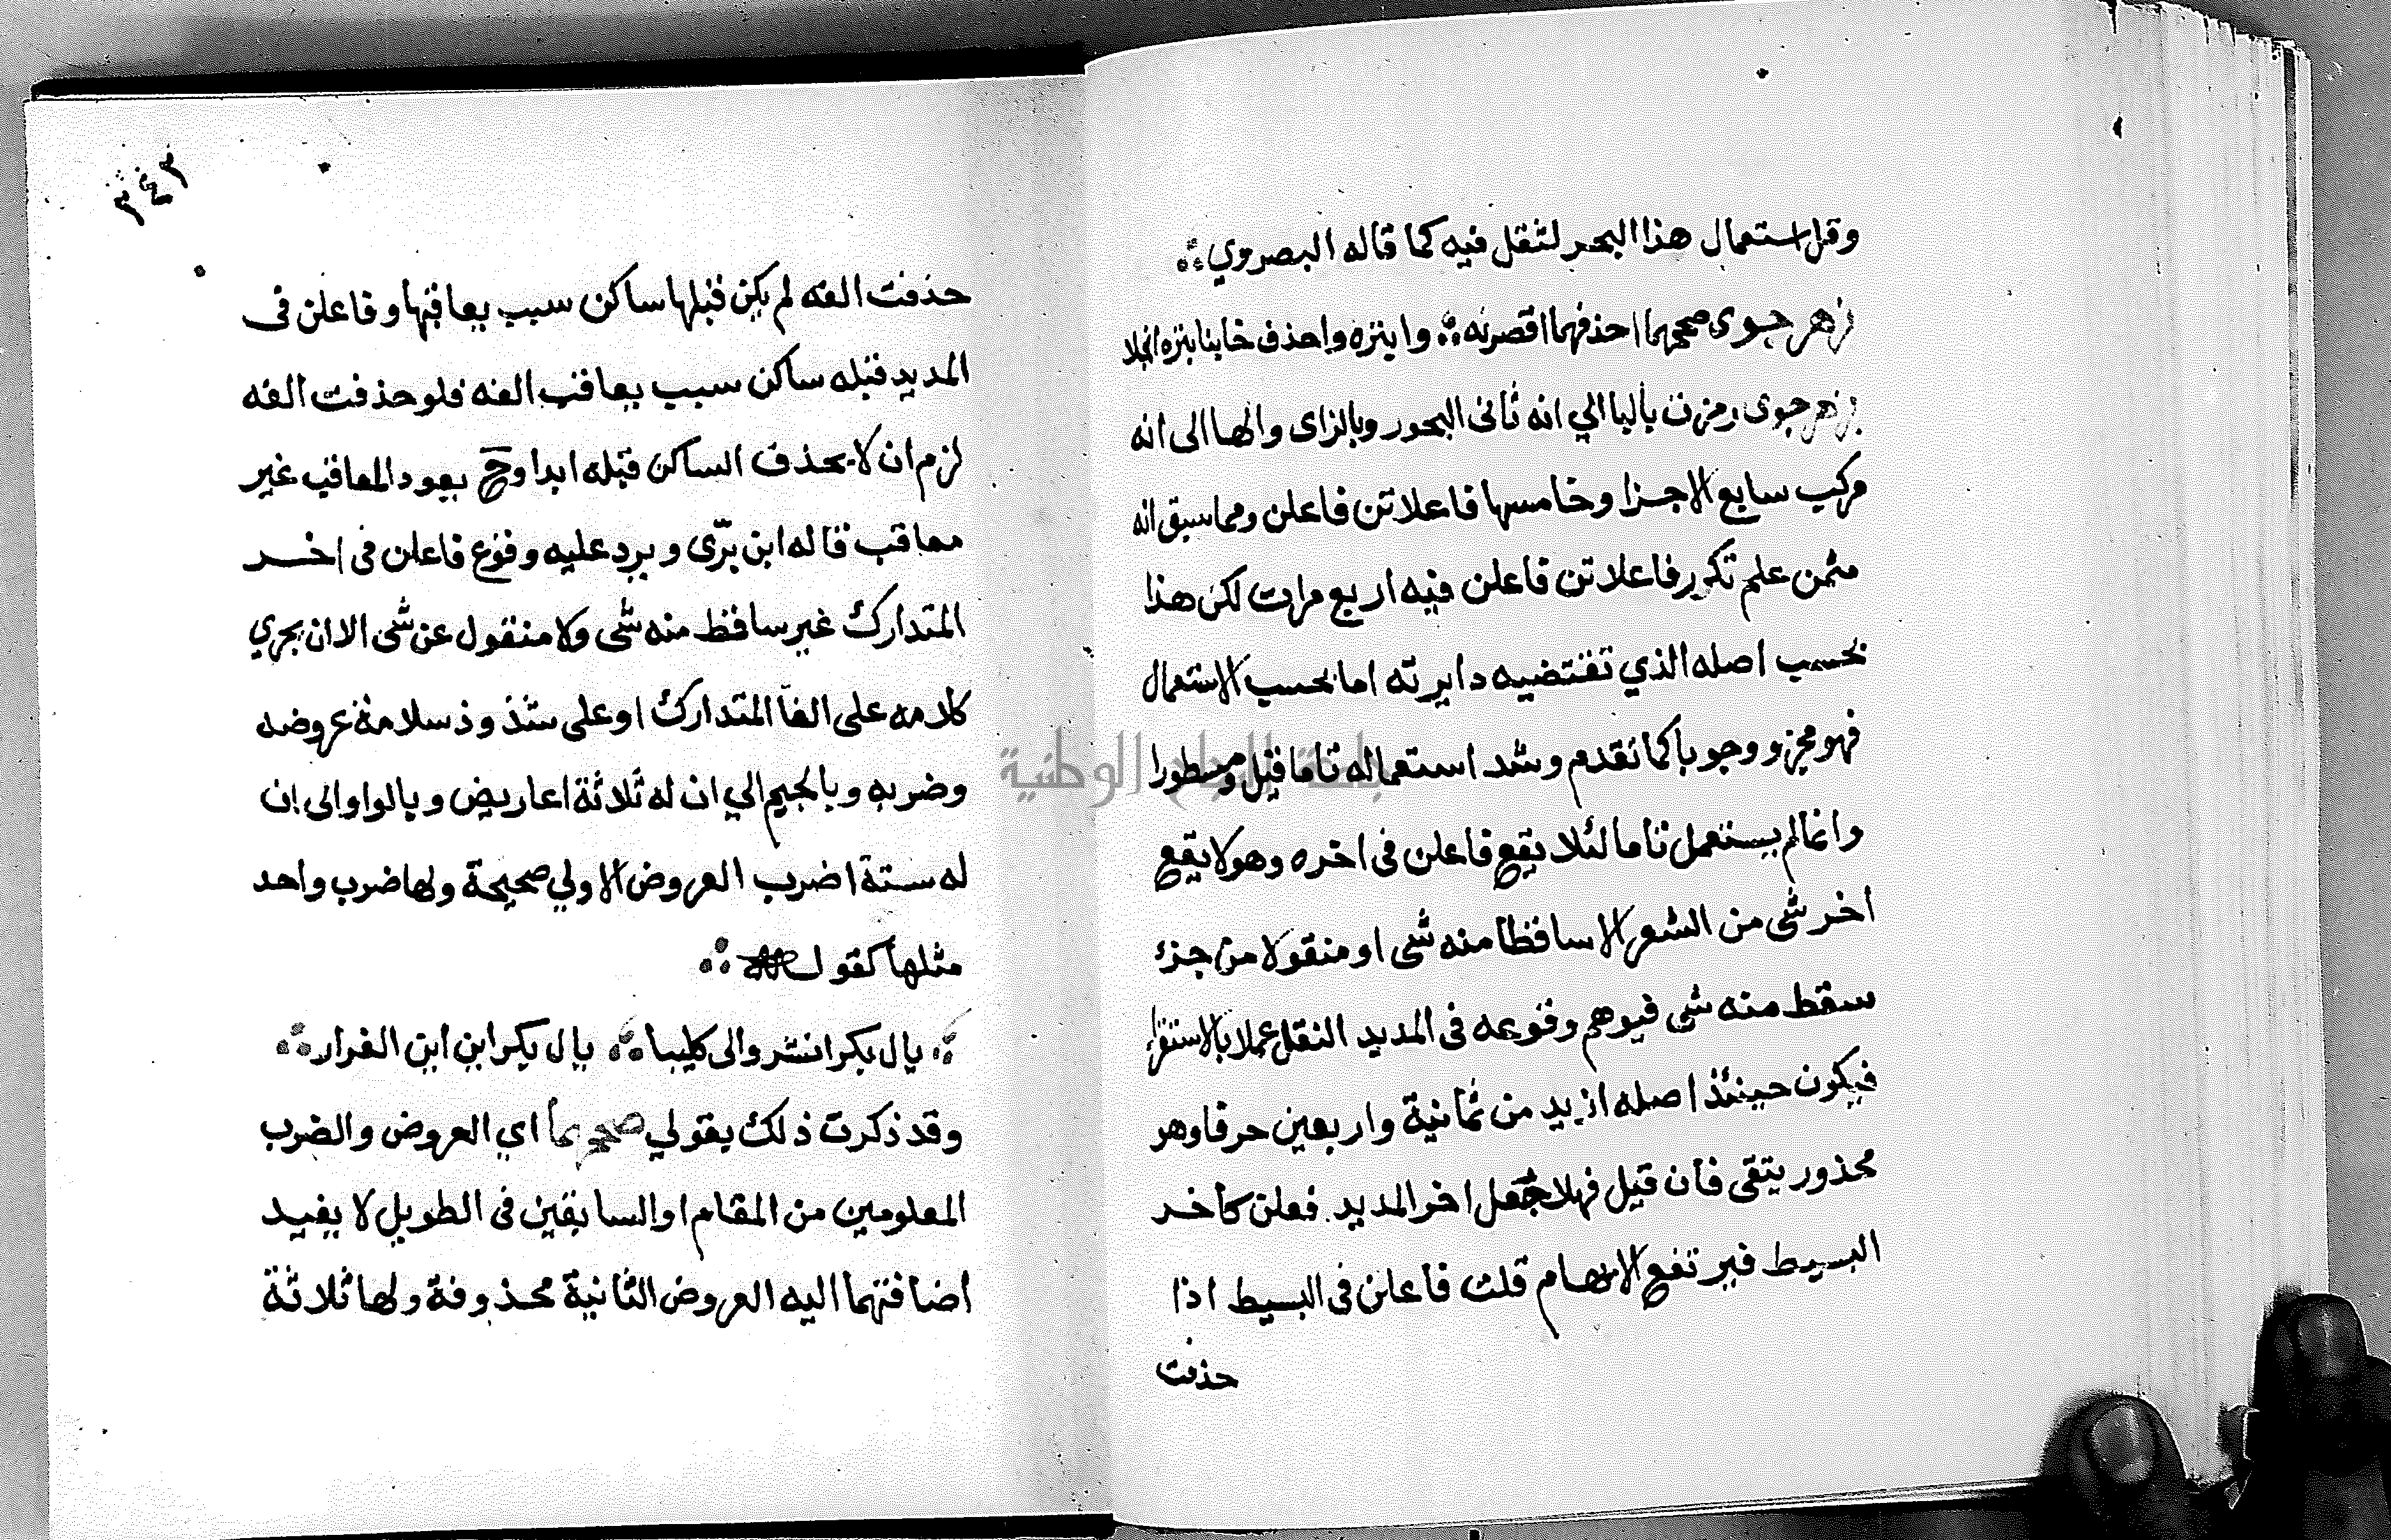 وقل استعمال هذا البحر لثقل فيه كما قاله البصروي
زهر جوى صححهما احذفهما اقصرنه وابتره واحذف خابنا بتره انجلا
بزهر جوى رمزت باليا الي انه ثانى البحور وبالزاى والها الى انه
مركب سابع الاجزا وخامسها فاعلاتن فاعلن ومما سبق انه
مثمن علم تكرر فاعلاتن فاعلن فيه اربع مرات لكن هذا
بحسب اصله الذي تقتضيه دايرته اما بحسب الاستعمال
فهو مجزو وجوبا كما تقدم وشد استعماله تاما قيل ومسطورا
وانما لم يستعمل تاما لئلا يقع فاعلن فى اخره وهو لا يقع
اخر شى من الشعر الا ساقطا منه شى او منقولا من جزء
سقط منه شى فيوهم وقوعه فى المديد النقل عملا بالاستقراء
فيكون حينئذ اصله ازيد من ثمانية واربعين حرفا وهو
محذور يتقى فان قيل فهلا جعل اخر المديد فعلن كأخر
البسيط فيرتفع الابهام قلت فاعلن فى البسيط اذا
حذفت
٣٤٢
حذفت الفه لم يكن قبلها ساكن سبب يعاقبها وفاعلن فى
المديد قبله ساكن سبب يعاقب الفه فلو حذفت الفه
لزم ان لا يحذف الساكن قبله ابدا وح يعود المعاقب غير
معاقب قاله ابن برّى ويرد عليه وقوع فاعلن فى اخر
المتدارك غير ساقط منه شى ولا منقول عن شى الا ان يجري
كلامه على الغا المتدارك او على شذوذ سلامة عروضه
وضربه وبالجيم الي ان له ثلاثة اعاريض وبالواو الى ان
له ستة اضرب العروض الاولي صحيحة ولها ضرب واحد
مثلها كقول
يال بكر انشروالى كليبا يال بكر اين اين الفرار
وقد ذكرت ذلك بقولي صححهما اي العروض والضرب
المعلومين من المقام او السابقين فى الطويل لا يفيد
اضافتهما اليه العروض الثانية محذوفة ولها ثلاثة
جامعة النجاح الوطنية